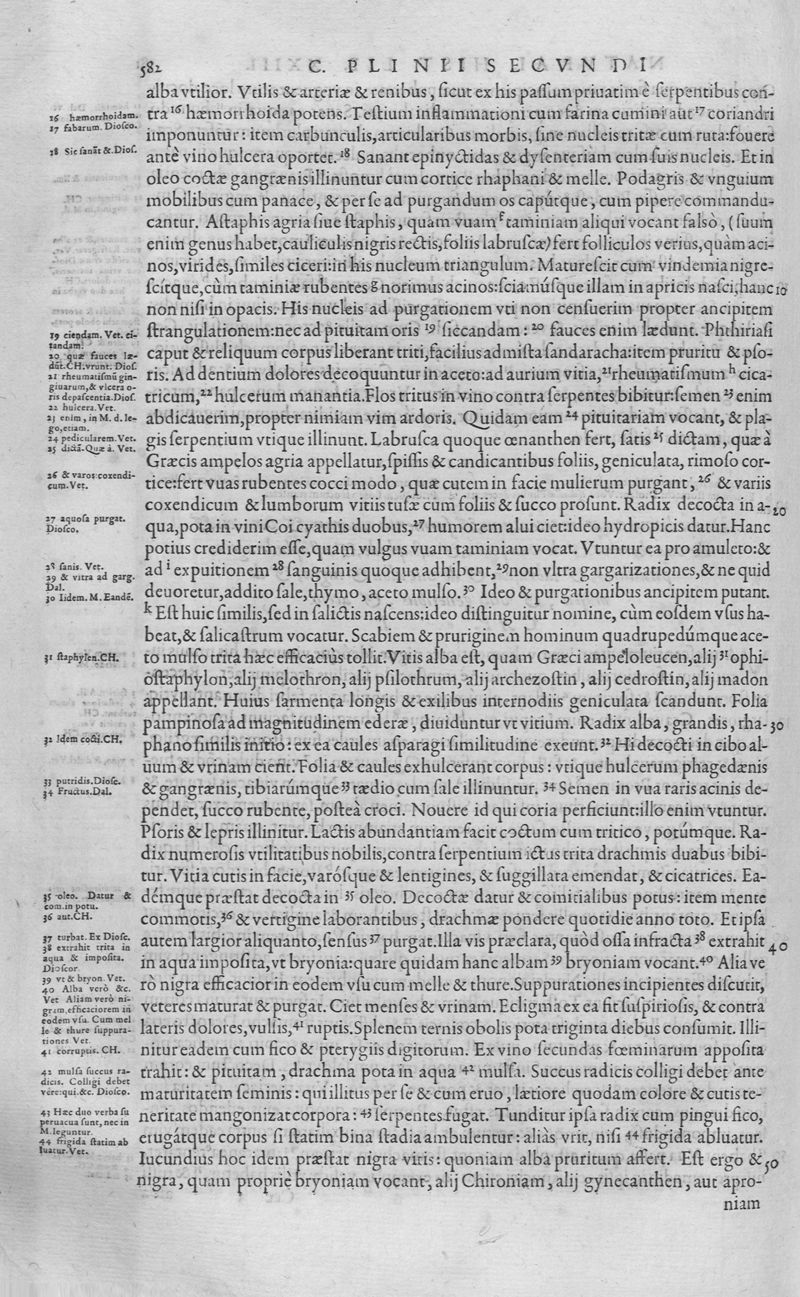 582 C. PLINII SECVNDI
alba vtilior. Vtilis & arteriæ & renibus, ſicut ex his paſſum priuatim è ſerpentibus con-
tra 16 hæmorrhoida potens. Teſtium inflammationi cum farina cumini aut 17 coriandri
imponuntur: item carbunculis, articularibus morbis, ſine nucleis tritæ cum ruta: fouere
antè vino hulcera oportet. 18 Sanant epinyctidas & dyſenteriam cum ſuis nucleis. Et in
oleo coctæ gangrænis illinuntur cum cortice rhaphani & melle. Podagris & vnguium
mobilibus cum panace, & per ſe ad purgandum os capútque, cum pipere commandu-
cantur. Aſtaphis agria ſiue ſtaphis, quam vuam f taminiam aliqui vocant falsò, (ſuum
enim genus habet, cauliculis nigris rectis, foliis labruſcæ) fert folliculos verius, quàm aci-
nos, virides, ſimiles ciceri: in his nucleum triangulum. Matureſcit cum vindemia nigre-
ſcítque, cùm taminiæ rubentes g norimus acinos: ſciamúſque illam in apricis naſci, hanc 10
non niſi in opacis. His nucleis ad purgationem vti non cenſuerim propter ancipitem
ſtrangulationem: nec ad pituitam oris 19 ſiccandam: 20 fauces enim lædunt. Phthiriaſi
caput & reliquum corpus liberant triti, facilius admiſta ſandaracha: item pruritu & pſo-
ris. Ad dentium dolores decoquuntur in aceto: ad aurium vitia, 21 rheumatiſmum h cica-
tricum, 22 hulcerum manantia. Flos tritus in vino contra ſerpentes bibitur: ſemen 23 enim
abdicauerim, propter nimiam vim ardoris. Quidam eam 24 pituitariam vocant, & pla-
gis ſerpentium vtique illinunt. Labruſca quoque œnanthen fert, ſatis 25 dictam, quæ à
Græcis ampelos agria appellatur, ſpiſſis & candicantibus foliis, geniculata, rimoſo cor-
tice: fert vuas rubentes cocci modo, quæ cutem in facie mulierum purgant, 26 & variis
coxendicum & lumborum vitiis tuſæ cum foliis & ſucco proſunt. Radix decocta in a- 20
qua, pota in vini Coi cyathis duobus, 27 humorem alui ciet: ideo hydropicis datur. Hanc
potius crediderim eſſe, quam vulgus vuam taminiam vocat. Vtuntur ea pro amuleto: &
ad i expuitionem 28 ſanguinis quoque adhibent, 29 non vltra gargarizationes, & ne quid
deuoretur, addito ſale, thymo, aceto mulſo. 30 Ideo & purgationibus ancipitem putant.
k Eſt huic ſimilis, ſed in ſalictis naſcens: ideo diſtinguitur nomine, cùm eoſdem vſus ha-
beat, & ſalicaſtrum vocatur. Scabiem & pruriginem hominum quadrupedúmque ace-
to mulſo trita hæc efficaciùs tollit. Vitis alba eſt, quam Græci ampeloleucen, alij 31 ophi-
oſtaphylon, alij melothron, alij pſilothrum, alij archezoſtin, alij cedroſtin, alij madon
appellant. Huius ſarmenta longis & exilibus internodiis geniculata ſcandunt. Folia
pampinoſa ad magnitudinem ederæ, diuiduntur vt vitium. Radix alba, grandis, rha- 30
phano ſimilis initio: ex ea caules aſparagi ſimilitudine exeunt. 32 Hi decocti in cibo al-
uum & vrinam cient. Folia & caules exhulcerant corpus: vtique hulcerum phagedænis
& gangrænis, tibiarúmque 33 tædio cum ſale illinuntur. 34 Semen in vua raris acinis de-
pendet, ſucco rubente, poſteà croci. Nouere id qui coria perficiunt: illo enim vtuntur.
Pſoris & lepris illinitur. Lactis abundantiam facit coctum cum tritico, potúmque. Ra-
dix numeroſis vtilitatibus nobilis, contra ſerpentium ictus trita drachmis duabus bibi-
tur. Vitia cutis in facie, varóſque & lentigines, & ſuggillata emendat, & cicatrices. Ea-
démque præſtat decocta in 35 oleo. Decoctæ datur & comitialibus potus: item mente
commotis, 36 & vertigine laborantibus, drachmæ pondere quotidie anno toto. Et ipſa
autem largior aliquanto, ſenſus 37 purgat. Illa vis præclara, quòd oſſa infracta 38 extrahit 40
in aqua impoſita, vt bryonia: quare quidam hanc albam 39 bryoniam vocant. 40 Alia ve
rò nigra efficacior in eodem vſu cum melle & thure. Suppurationes incipientes diſcutit,
veteres maturat & purgat. Ciet menſes & vrinam. Ecligma ex ea fit ſuſpirioſis, & contra
lateris dolores, vulſis, 41 ruptis. Splenem ternis obolis pota triginta diebus conſumit. Illi-
nitur eadem cum fico & pterygiis digitorum. Ex vino ſecundas fœminarum appoſita
trahit: & pituitam, drachma pota in aqua 42 mulſa. Succus radicis colligi debet ante
maturitatem ſeminis: qui illitus per ſe & cum eruo, lætiore quodam colore & cutis te-
neritate mangonizat corpora: 43 ſerpentes fugat. Tunditur ipſa radix cum pingui fico,
erugátque corpus ſi ſtatim bina ſtadia ambulentur: aliàs vrit, niſi 44 frigida abluatur.
Iucundius hoc idem præſtat nigra vitis: quoniam alba pruritum affert. Eſt ergo & 50
nigra, quam propriè bryoniam vocant, alij Chironiam, alij gynecanthen, aut apro-
niam
16 hæmorrhoidam.
17 fabarum. Dioſco.
18 Sic ſanãt &. Dioſ.
19 ciendam. Vet. ci-
tandam.
20 quæ fauces læ-
dãt. CH. vrunt. Dioſ.
21 rheumatiſmũ gin-
giuarum, & vlcera o-
ris depaſcentia. Dioſ.
22 huicera. Vet.
23 enim, in M. d. le-
go, etiam.
24 pedicularem. Vet.
25 dictã. Quæ à. Vet.
26 & varos coxendi-
cum. Vet.
27 aquoſa purgat.
Dioſco.
28 ſanis. Vet.
29 & vitra ad garg.
Dal.
30 Iidem. M. Eandẽ.
31 ſtaphylen. CH.
32 Idem cocti. CH.
33 putridis. Dioſc.
34 Fructus. Dal.
35 oleo. Datur &
com. in potu.
36 aut. CH.
37 turbat. Ex Dioſc.
38 extrahit trita in
aqua & impoſita.
Dioſcor.
39 vt & bryon. Vet.
40 Alba verò &c.
Vet Aliam verò ni-
gram, efficaciorem in
eodem vſu. Cum mel
le & thure ſuppura-
tiones Vet.
41 corruptis. CH.
42 mulſa ſuccus ra-
dicis. Colligi debet
vere: qui. &c. Dioſco.
43 Hæc duo verba ſu
peruacua ſunt, nec in
M. leguntur.
44 frigida ſtatim ab
luatur. Vet.